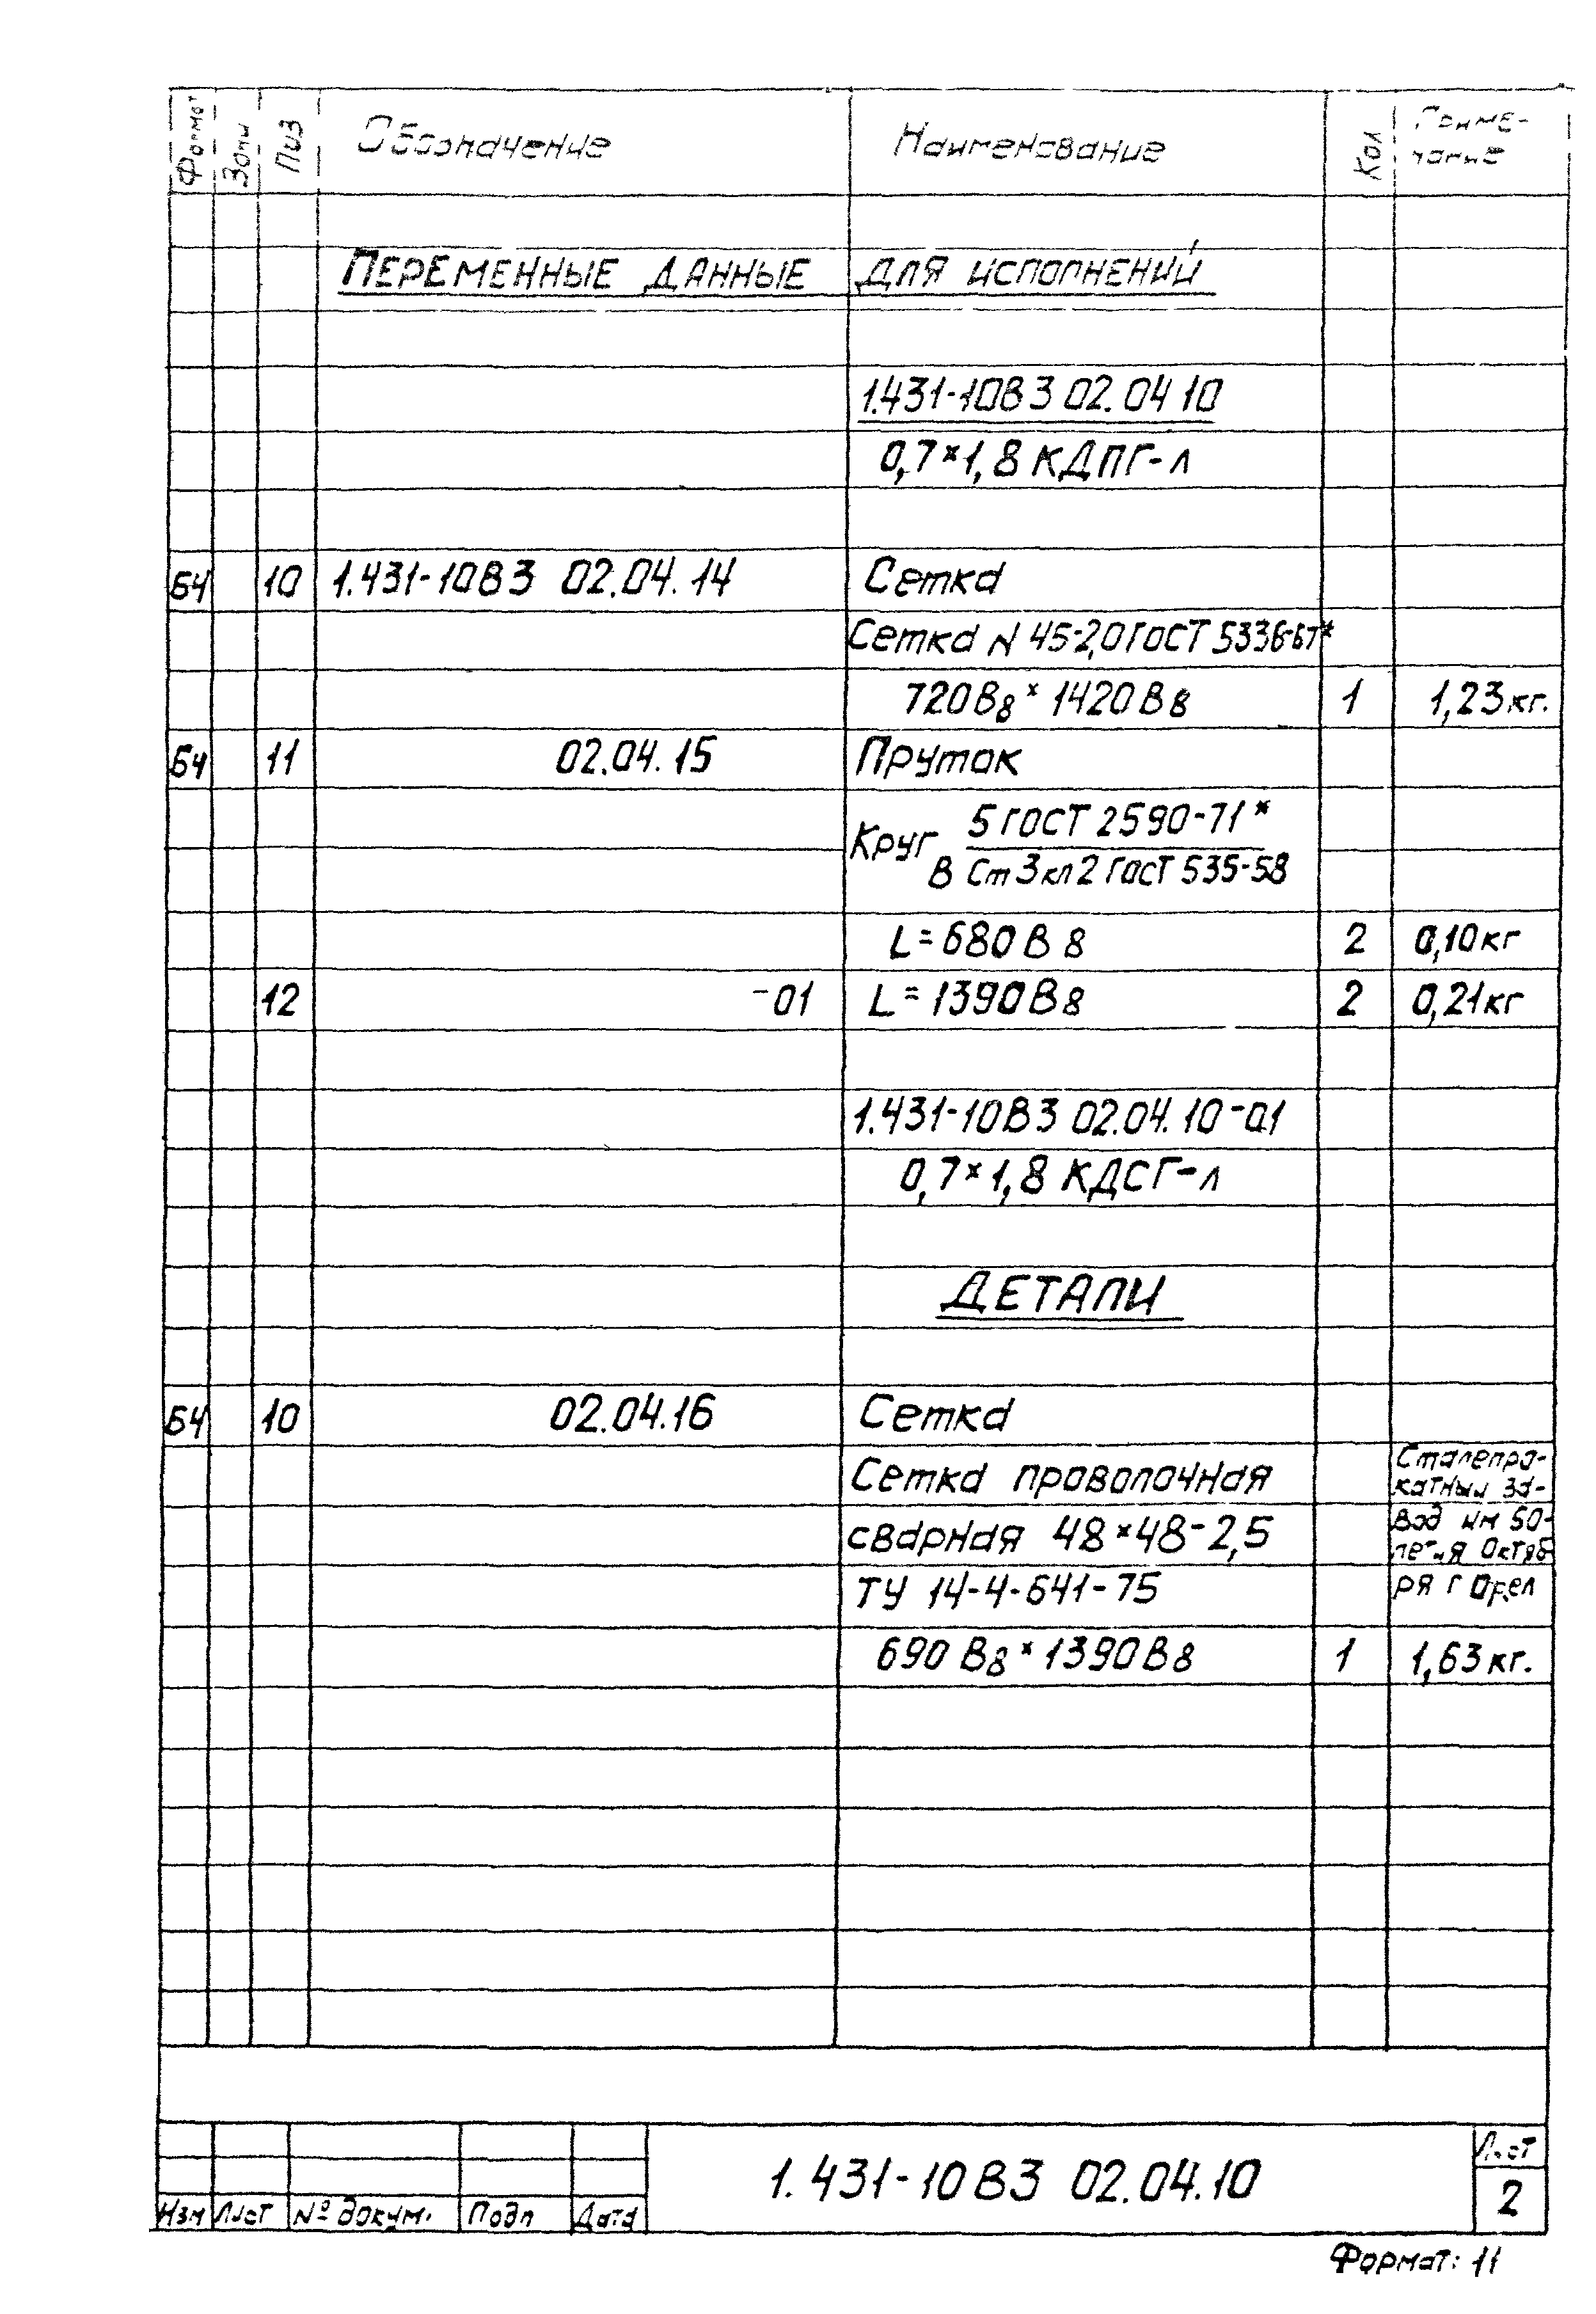 Формат Зона Поз Обозначение Наименование Кол Приме-
чание
ПЕРЕМЕННЫЕ ДАННЫЕ ДЛЯ ИСПОЛНЕНИЙ
1.431-10В3 02.04 10
0,7×1,8 КДПГ-л
БЧ 10 1.431-10В3 02.04.14 Сетка
Сетка N 45-2,0 ГОСТ 5336-67*
720 В8 × 1420 В8 1 1,23 кг.
БЧ 11 02.04.15 Пруток
Круг 5 ГОСТ 2590-71*
В Ст 3 кп 2 ГОСТ 535-58
L=680 В 8 2 0,10 кг
12 -01 L=1390 В8 2 0,21 кг
1.431-10В3 02.04.10-01
0,7×1,8 КДСГ-л
ДЕТАЛИ
БЧ 10 02.04.16 Сетка
Сетка проволочная
сварная 48×48-2,5
ТУ 14-4-641-75
Сталепро-
катный за-
вод им 50-
летия Октяб
ря г Орел
690 В8 × 1390 В8 1 1,63 кг.
Изм Лист № докум. Подп Дата
1.431-10 В3 02.04.10
Лист
2
Формат: 11